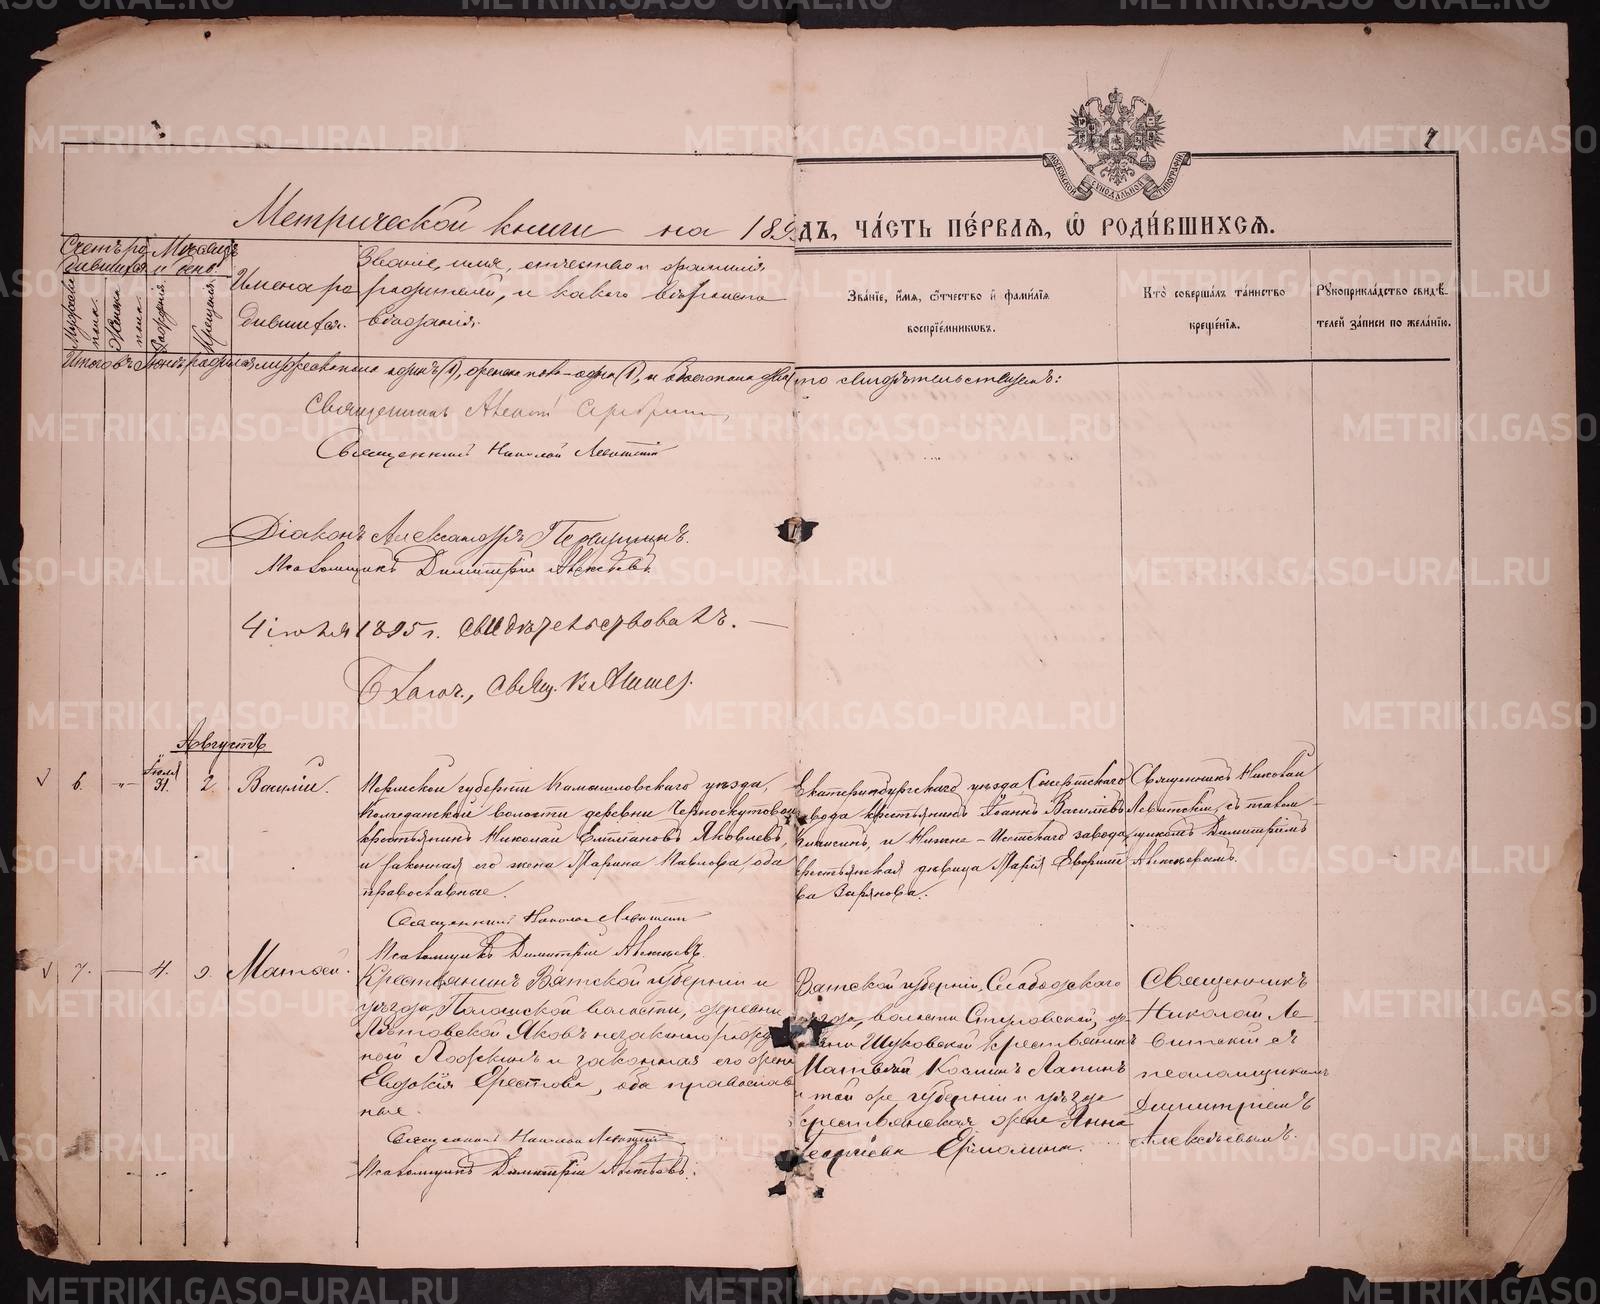 METRIKI.GASO-URAL.RU
МОСКОВСКОЙ СѴНОДАЛЬНОЙ ТИПОГРАФІИ
7
Метрической книги на 189
дъ, ча́сть пе́рваѧ, ѡ҆ роди́вшихсѧ.
Счетъ родившихся
Мужска пола.
Женска пола.
Мѣсяцъ и день
Рожденія.
Крещенія.
Имена родившихся.
Званіе, имя, отчество и фамилія
родителей, и какого вѣроисповѣданія.
Зва́нїе, и҆́мѧ, ѻ҆́тчество и҆ фами́лїѧ
воспрїе́мникѡвъ.
Кто̀ соверша́лъ та́инство
креще́нїѧ.
Рꙋкоприкла́дство свидѣ́-
телей за́писи по жела́нїю.
Итого въ родился мужескаго пола одинъ (1), женска пола – одна (1), а обоего пола два
то свидѣтельствуемъ:
Священникъ
Священникъ Николай Левитскій
Діаконъ Александръ Первушинъ.
Псаломщикъ Димитрій Алексѣевъ.
4 іюля 1895 г. свидѣтельствовалъ. —
Благоч., свящ.
Августъ
6. „ Іюля 31. 2. Василій.
Пермской губерніи Камышловскаго уѣзда,
Колчеданской волости деревни Черноскутовой
крестьянинъ Николай Яковлевъ,
и законная его жена Марина Павлова, оба
православные.
Екатеринбургскаго уѣзда, Сысертскаго
завода крестьянинъ Іоаннъ Васильевъ
и Нижне-Исетскаго завода
крестьянская дѣвица Марія
Священникъ Николай
Левитскій, съ псалом-
щикомъ Димитріемъ
Алексѣевымъ.
Священникъ Николай Левитскій
Псаломщикъ Димитрій Алексѣевъ.
7. — 4. Матвей.
Крестьянинъ Вятской губерніи и
уѣзда, волости, деревни
Яковъ незаконнорожден-
ной и законная его жена
Евдокія Ерестова, оба православ
ные.
Вятской губерніи, Слободскаго
уѣзда, волости Стуловской, де-
ревни Шуковской крестьянинъ
Матвей Косминъ Лапинъ
и той же губерніи и уѣзда
крестьянская жена Анна
Георгіева Ермолина.
Священникъ
Николай Ле-
витскій съ
псаломщикомъ
Димитріемъ
Алексѣевымъ.
Священникъ Николай Левитскій
Псаломщикъ Димитрій Алексѣевъ.